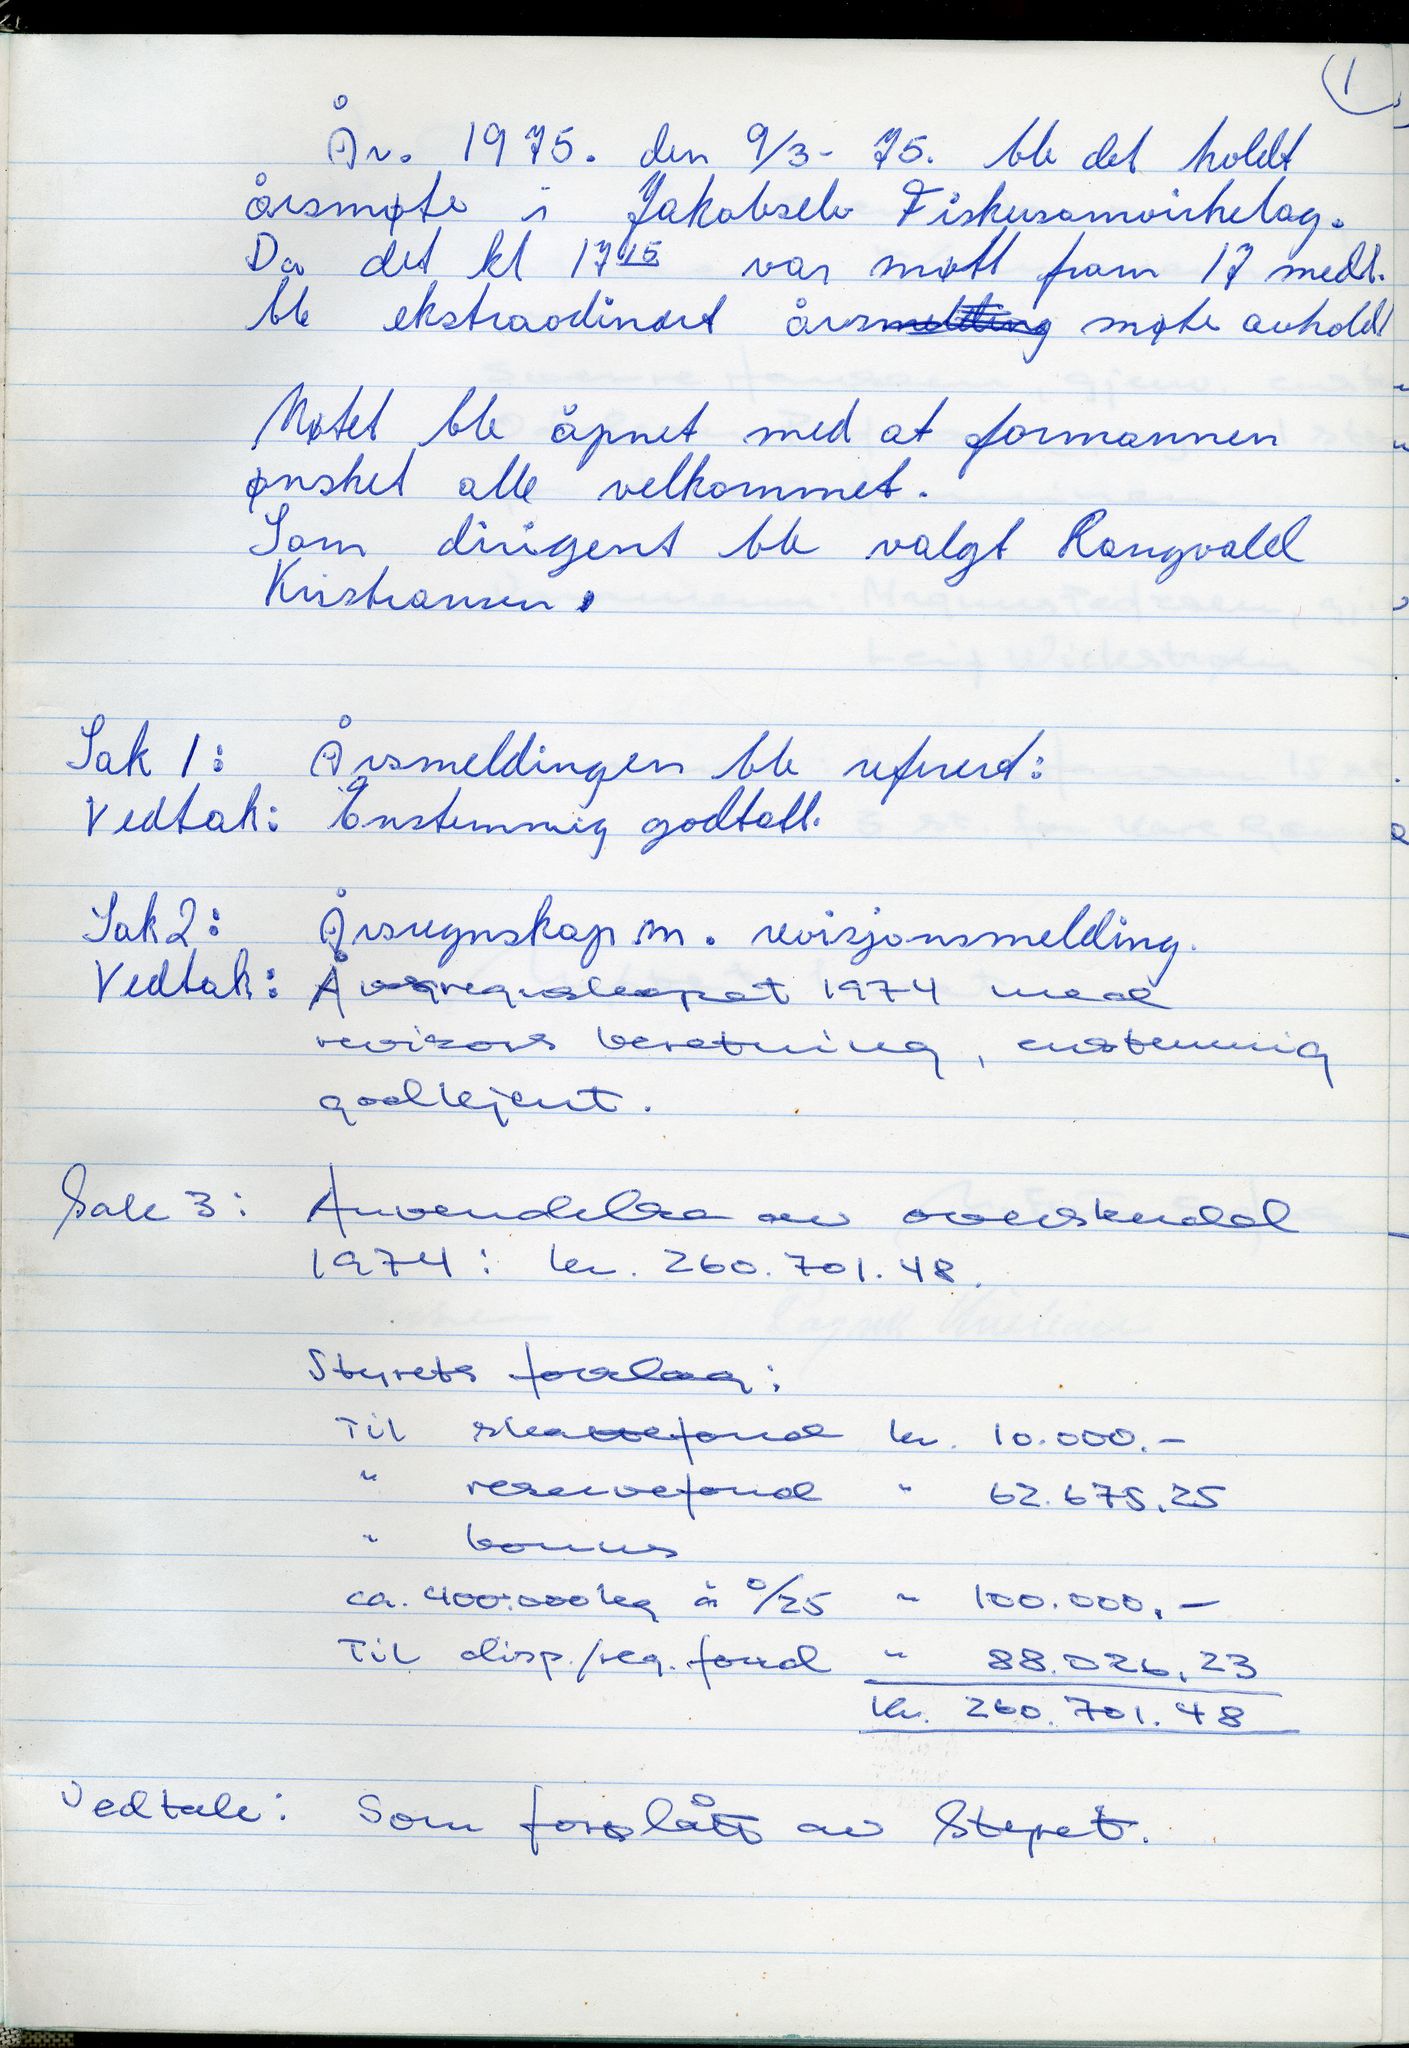 1
År. 1975. den 9/3- 75. ble det holdt
årsmøte i Jakobselv Fiskersamvirkelag.
Da det kl 17 15 var møtt fram 17 medl.
ble ekstraodinært års møte avholdt
Møtet ble åpnet med at formannen
ønsket alle velkommet.
Som dirigent ble valgt Rangvald
Kristiansen.
Sak 1: Årsmeldingen ble refererd:
Vedtak: Enstemmig godtatt.
Sak 2: Årsregnskap m. revisjonsmelding.
Vedtak: Årsregnskapet 1974 med
revisors beretning, enstemmig
godkjent.
Sak 3: Anvendelse av overskudd
1974: kr. 260.701.48.
Styrets forslag:
Til skattefond kr. 10.000.-
" reservefond " 62.675,25
" bonus
ca. 400.000 kg à 0/25 " 100.000,-
Til disp./reg. fond " 88.026,23
kr. 260.701.48
Vedtak: Som forslått av Styret.